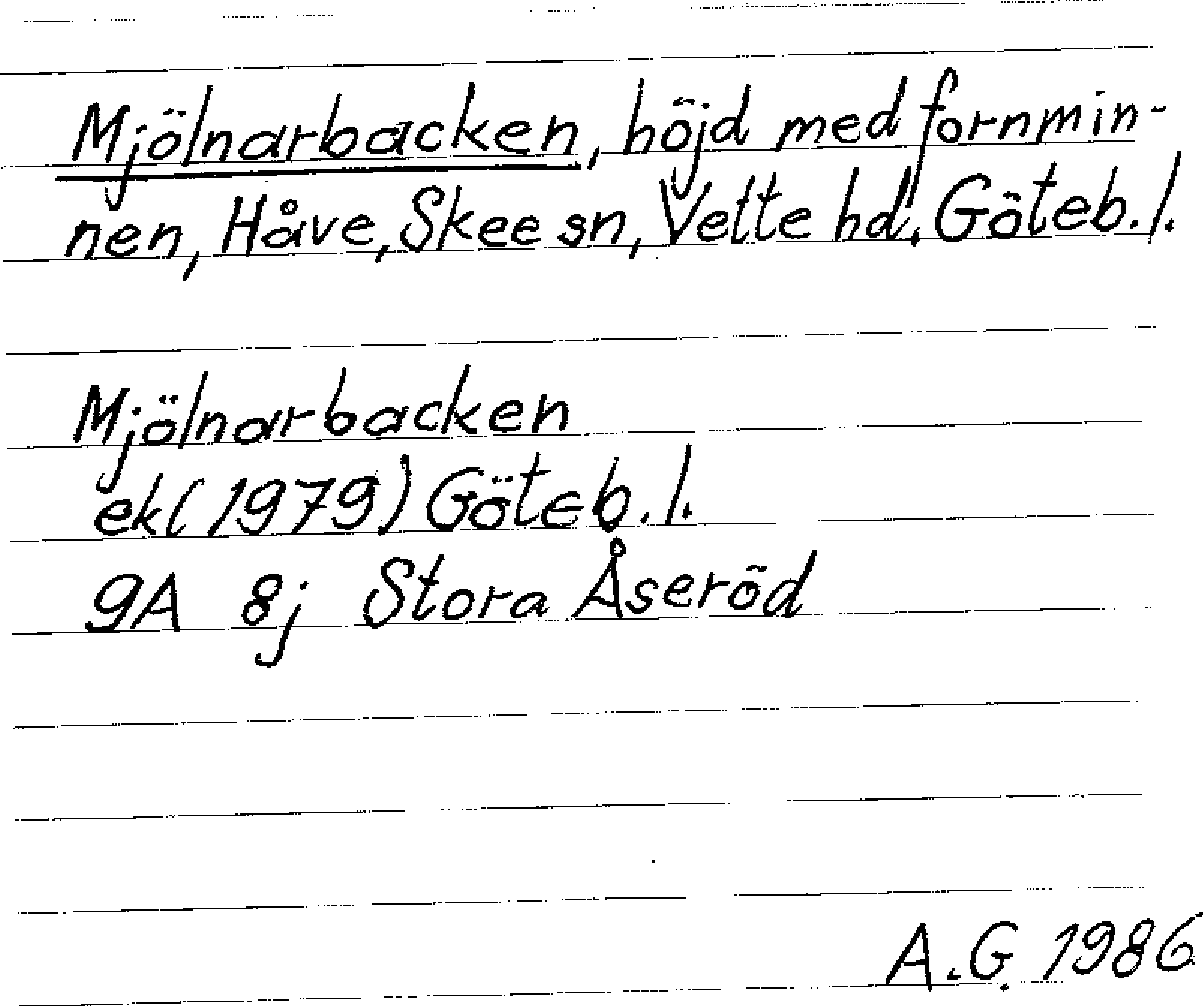 Mjölnarbacken, höjd med fornmin-
nen, Håve, Skee sn, Vette hd, Göteb. l.
Mjölnarbacken
ek (1979) Göteb. l.
9A 8j Stora Åseröd
A.G. 1986